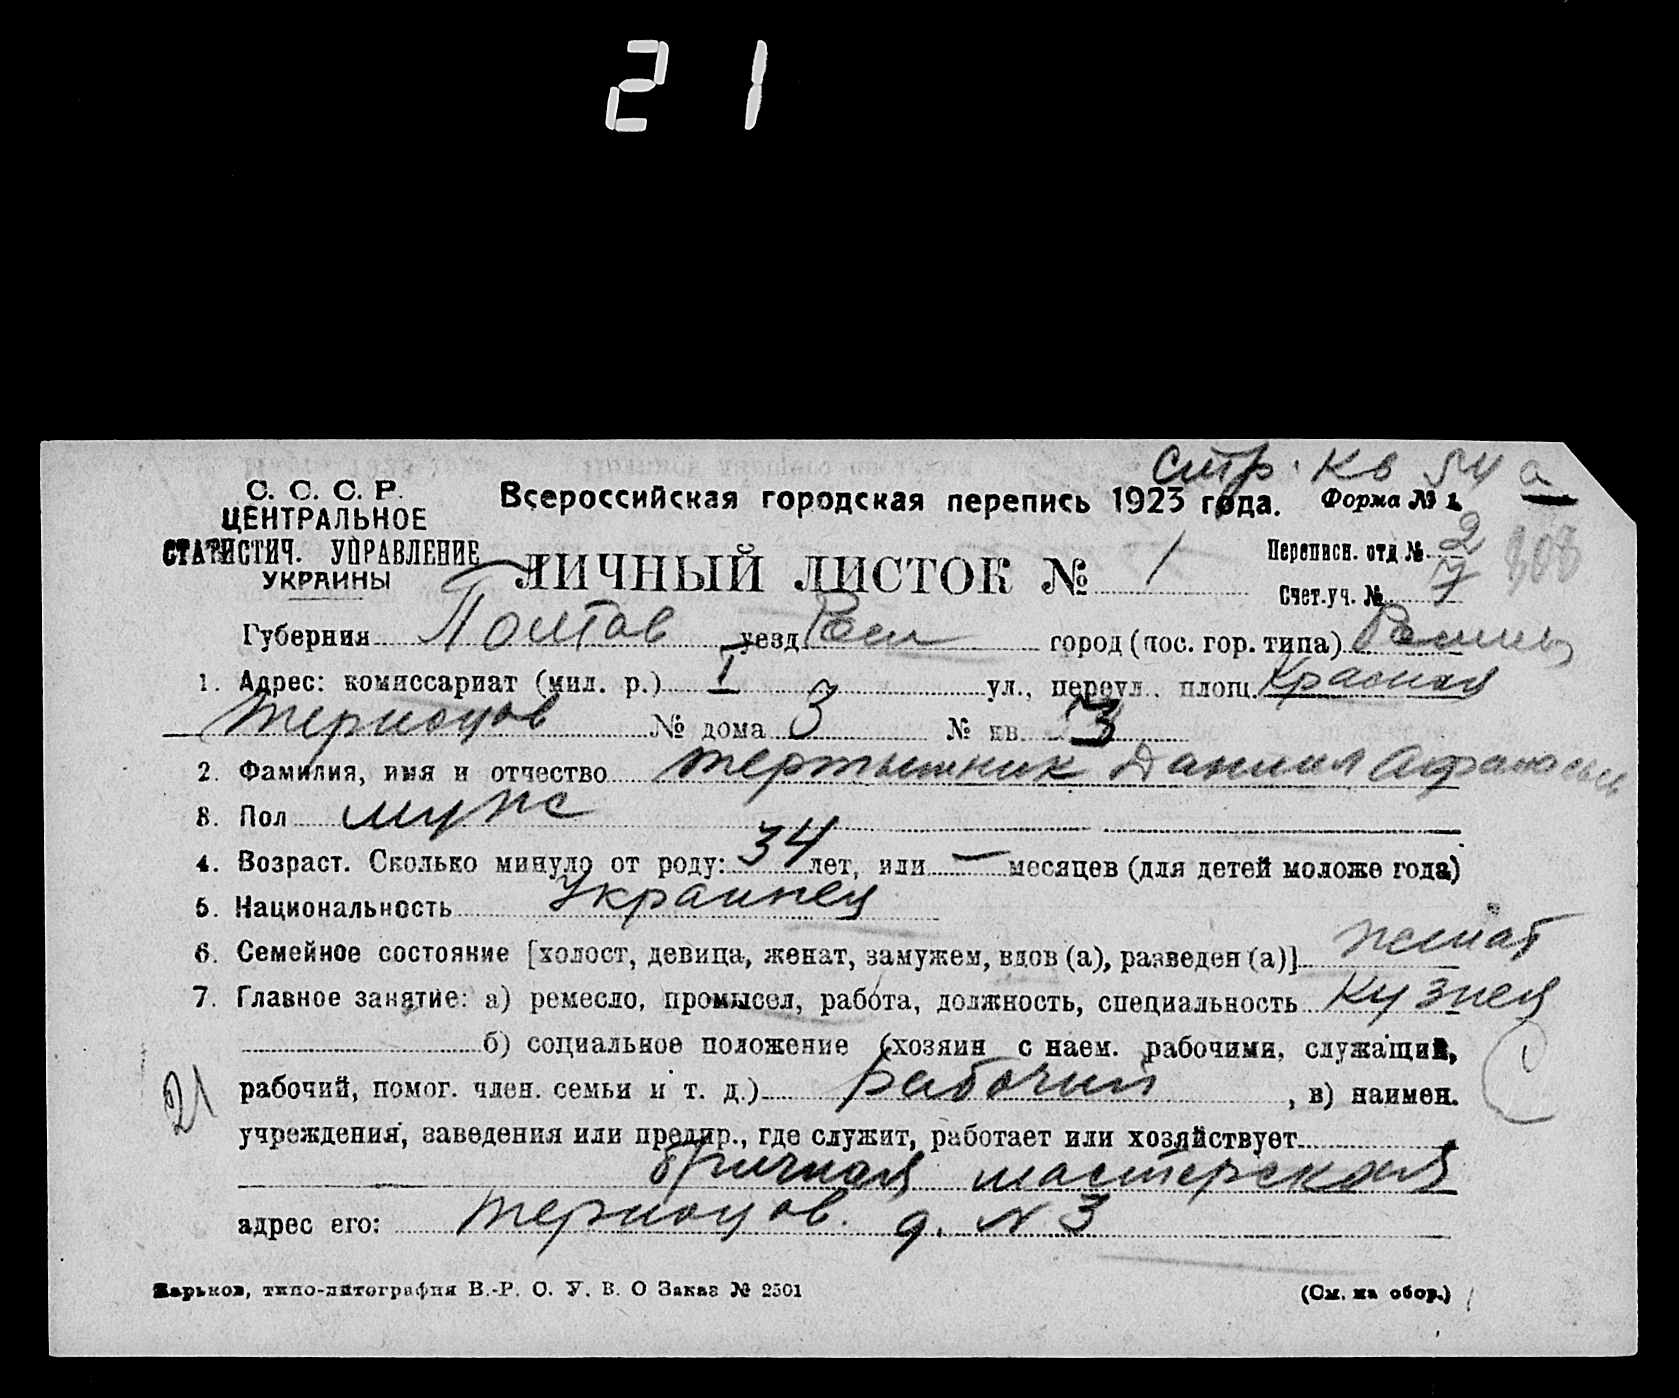 21
стр. кв 54 а
С. С. С. Р.
ЦЕНТРАЛЬНОЕ
СТАТИСТИЧ. УПРАВЛЕНИЕ
УКРАИНЫ
Всероссийская городская перепись 1923 года. Форма № 1.
ЛИЧНЫЙ ЛИСТОК № 1
Переписн. отд № 2
Счет.уч. № 7
Губерния Полтав уезд Ром город (пос. гор. типа) Ромны
1. Адрес: комиссариат (мил. р.) I ул., переул., площ. Красная
№ дома 3 № кв. 3
2. Фамилия, имя и отчество Тертышник Данил Афанасьев
3. Пол муж
4. Возраст. Сколько минуло от роду: 34 лет, или — месяцев (для детей моложе года)
5. Национальность Украинец
6. Семейное состояние [холост, девица, женат, замужем, вдов (а), разведен (а)] женат
7. Главное занятие: а) ремесло, промысел, работа, должность, специальность Кузнец
б) социальное положение (хозяин с наем. рабочими, служащий,
21
рабочий, помог. член. семьи и т. д.) рабочий, в) наимен.
учреждения, заведения или предпр., где служит, работает или хозяйствует
бричная мастерская
адрес его: д. № 3
Харьков, типо-литография В.-Р. О. У. В. О Заказ № 2501 (См. на обор.)